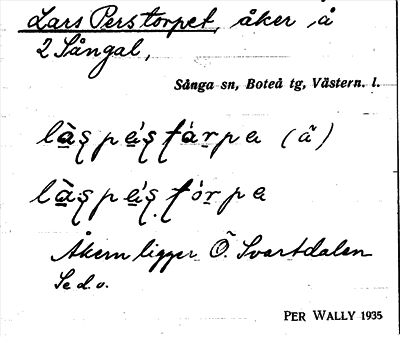 Lars Perstorpet, åker å
2 Sångal,
Sånga sn, Boteå tg, Västern. l.
(å)
Åkern ligger Ö. Svartdalen
Se d. o.
PER WALLY 1935